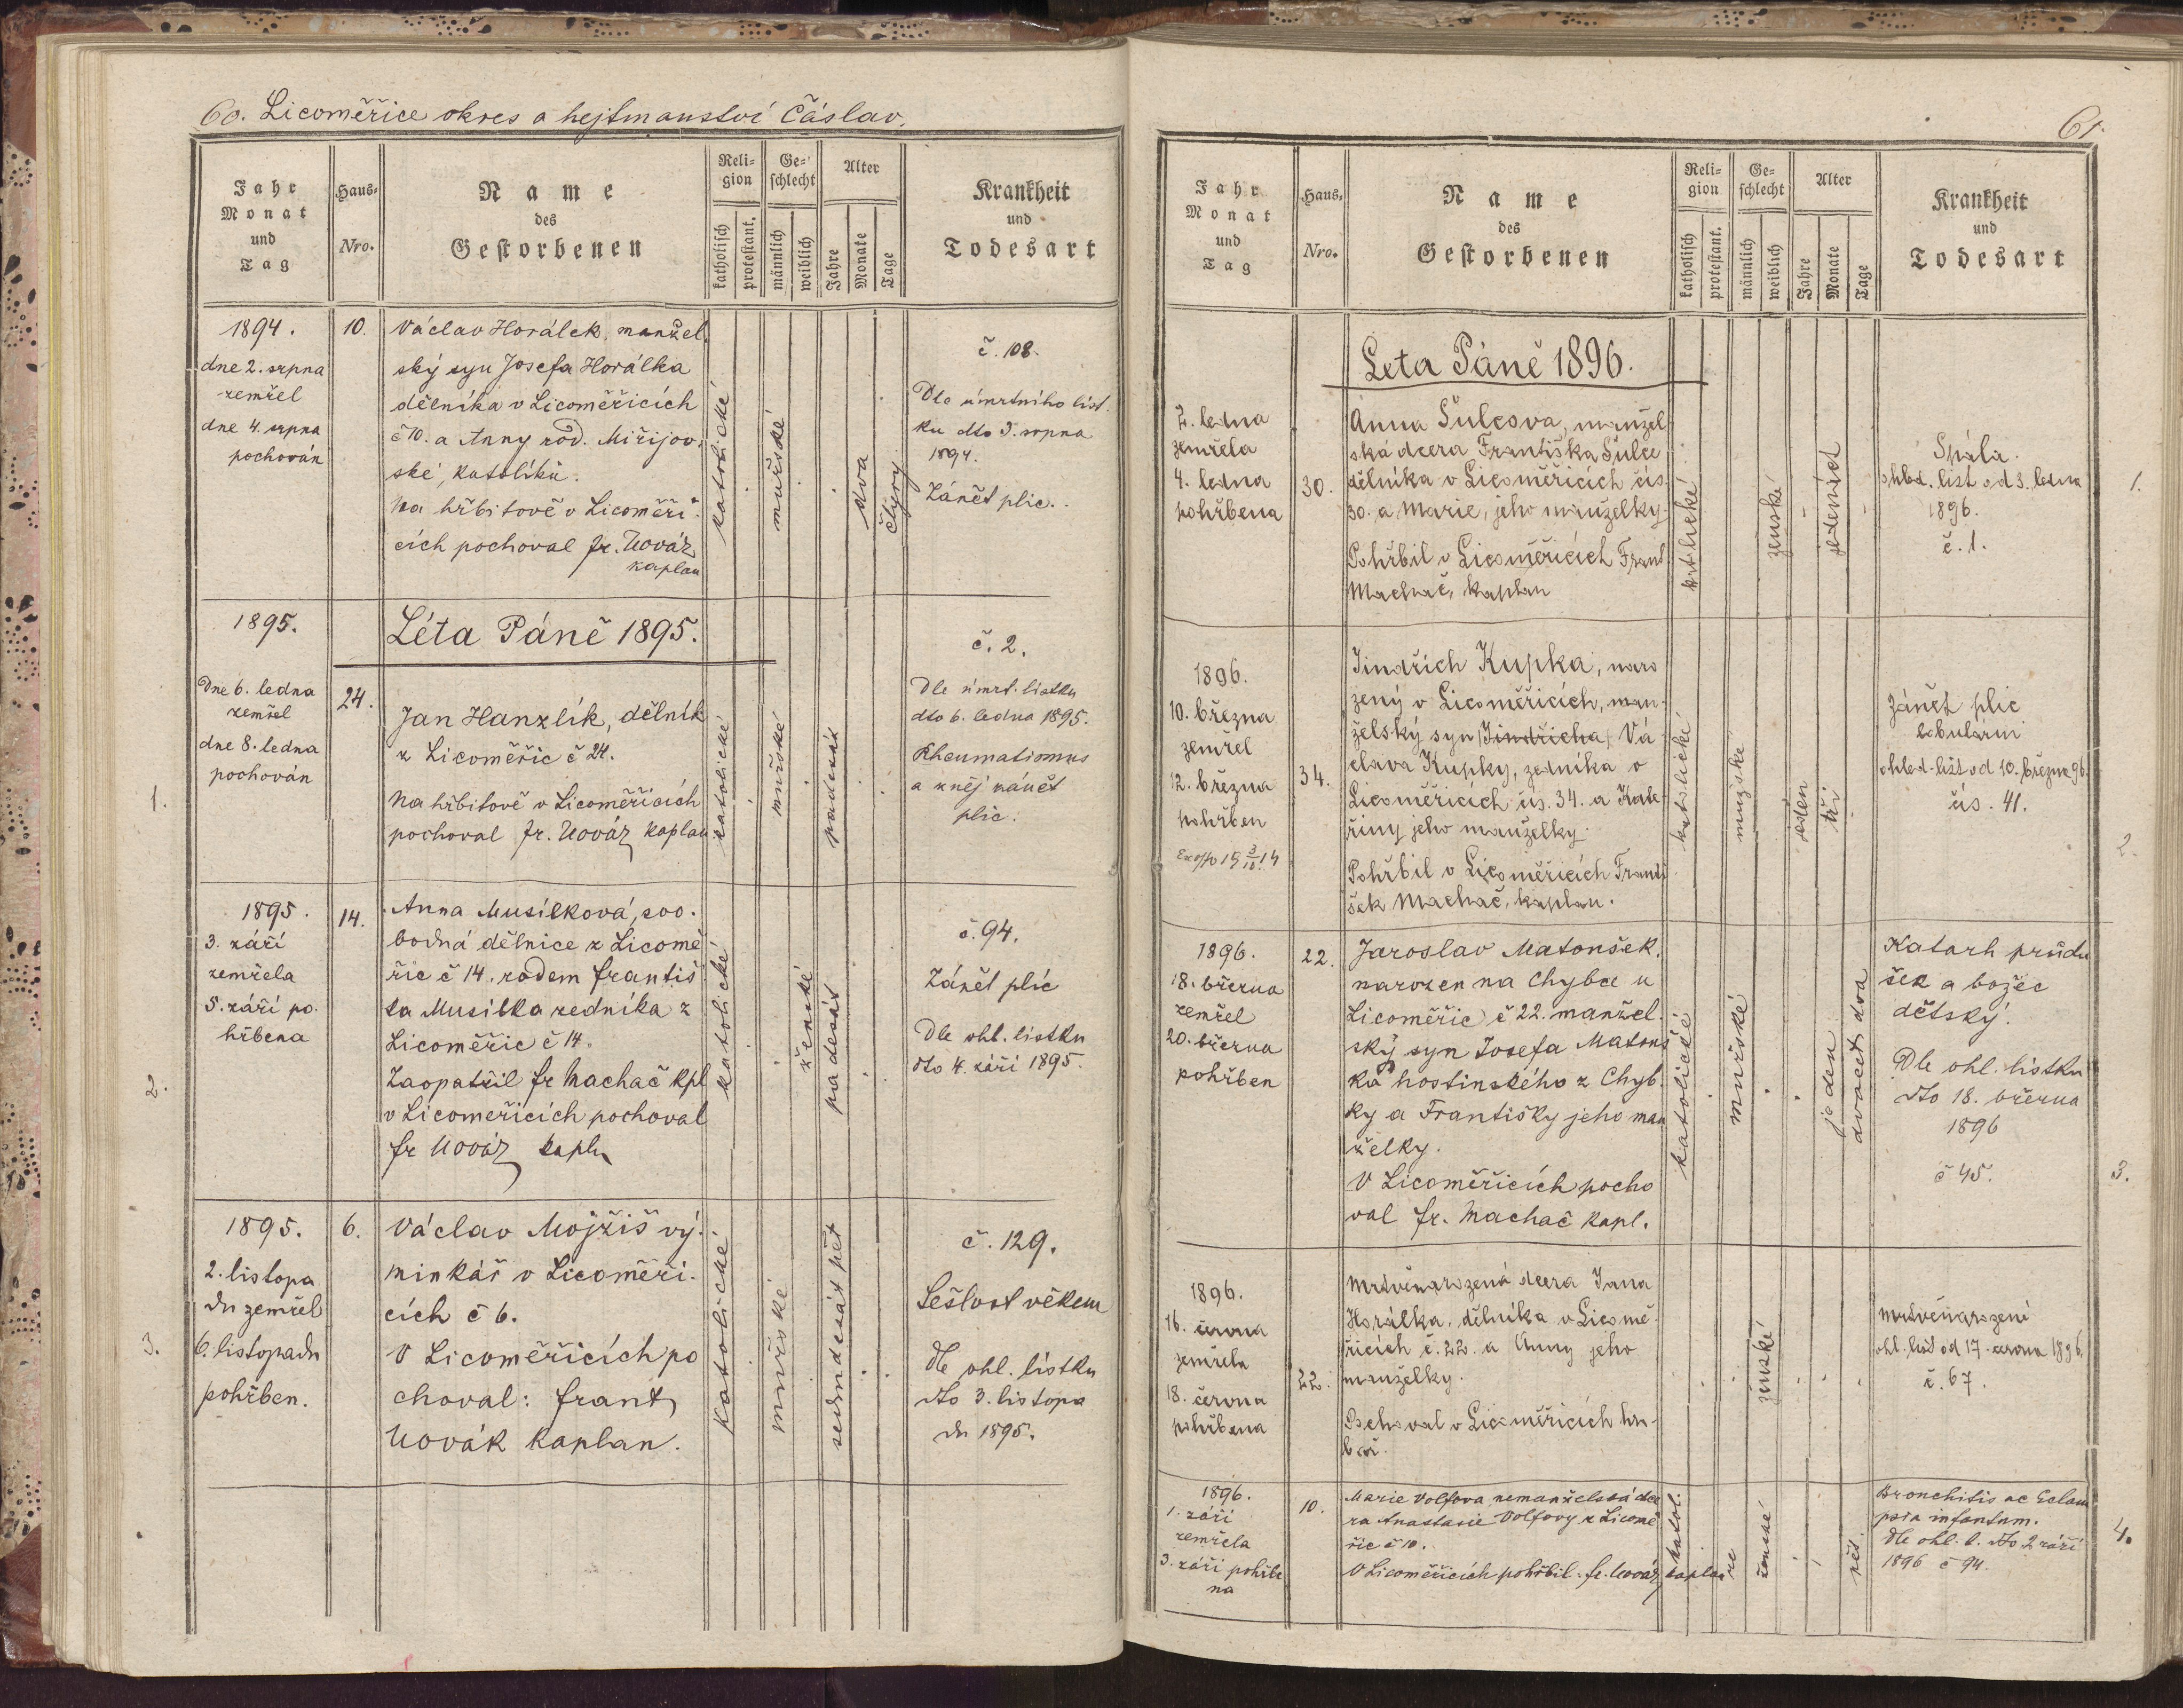 60. Licoměřice okres a hejtmanství Čáslav.
Jahr
Monat
und
Tag
Haus-
Nro.
Name
des
Gestorbenen
Reli-
gion
katholisch
protestant.
Ge-
schlecht
männlich
weiblich
Alter
Jahre
Monate
Tage
Krankheit
und
Todesart
1894.
dne 2. srpna
zemřel
dne 4. srpna
pochován
10.
Václav Horálek, manžel.
ský syn Josefa Horálka
dělníka v Licoměřicích
č 10. a Anny rod. Miřijov.
ské, katolíků.
Na hřbitově v Licoměři-
cích pochoval fr. Novák
kaplan
katolické
mužské
dva
čtyry
č. 108.
Dle úmrtního líst.
ku dto 3. srpna
1894.
Zánět plic.
1895.
Léta Páně 1895.
1.
Dne 6. ledna
zemřel
dne 8. ledna
pochován
24.
Jan Hanzlík, dělník
z Licoměřic č 24.
Na hřbitově v Licoměřicích
pochoval fr. Novák kaplan
katolické
mužské
padesát
č. 2.
Dle úmrt. lístku
dto 6. ledna 1895.
Rheumatismus
a z něj zánět
plic.
2.
1895.
3. září
zemřela
5. září po.
hřbena
14.
Anna Musílková, svo.
bodná dělnice z Licomě
řic č 14. rodem Františ
ka Musílka zedníka z
Licoměřic č 14.
Zaopatřil fr Machač kpl
v Licoměřicích pochoval
fr Novák kapln
katolické
ženské
padesát
č. 94.
Zánět plic
Dle ohl. lístku
dto 4. září 1895.
3.
1895.
2. listopa
du zemřel
6. listopadu
pohřben.
6.
Václav Mojžíš vý.
minkář v Licoměři.
cích č 6.
V Licoměřicích po
choval: Frant
Novák kaplan.
katolické
mužské
sedmdesát pět
č. 129.
Sešlost věkem
dle ohl. lístku
dto 3. listopa
du 1895.
61.
Jahr
Monat
und
Tag
Haus-
Nro.
Name
des
Gestorbenen
Reli-
gion
katholisch
protestant.
Ge-
schlecht
männlich
weiblich
Alter
Jahre
Monate
Tage
Krankheit
und
Todesart
Leta Páně 1896.
2. ledna
zemřela
4. ledna
pohřbena
30.
Anna Šulcova, manžel
ská dcera Františka Šulce
dělníka v Licoměřicích čís.
30. a Marie, jeho manželky.
Pohřbil v Licoměřicích Frant.
Machač, kaplan
katolické
ženské
jedenáct
Spála.
ohled. líst od 3. ledna
1896.
č. 1.
1.
1896.
10. března
zemřel
12. března
pohřben
34.
Jindřich Kupka, naro
zený v Licoměřicích, man-
želský syn (Jindřicha) Vá
clava Kupky, zedníka v
Licoměřicích čís. 34. a Kate-
řiny jeho manželky.
Pohřbil v Licoměřicích Franti
šek Machač, kaplan.
katolické
mužské
jeden
tři
Zánět plic
lobulární
ohled. líst od 10. března 96.
čís. 41.
2.
1896.
18. března
zemřel
20. března
pohřben
22.
Jaroslav Matoušek.
narozen na Chybce u
Licoměřic č 22. manžel.
ský syn Josefa Matouš
ka hostinského z Chyb
ky a Františky jeho man
želky.
V Licoměřicích pocho
val fr. Machač kapl.
katolické
mužské
jeden
dvacet dva
Katarh průdu
šek a božec
dětský.
Dle ohl. lístku
dto 18. března
1896
č 45.
3.
1896.
16. června
zemřela
18. června
pohřbena
22.
Mrtvěnarozená dcera Jana
Horálka, dělníka v Licomě-
řicích č. 22. a Anny jeho
manželky.
Pochoval v Licoměřicích hro-
bař.
ženské
mrtvěnarození
ohl. líst od 17. června 1896.
č. 67.
1896.
1. září
zemřela
3. září pohřbe
na
10.
Marie Volfova nemanželská dce
ra Anastasie Volfovy z Licomě
řic č 10.
V Licoměřicích pohřbil fr. Novák kaplan
katol.
ženské
pět
Bronchitis ac Eclam
psia infantum.
dle ohl. l. dto 2 září
1896 č 94.
4.